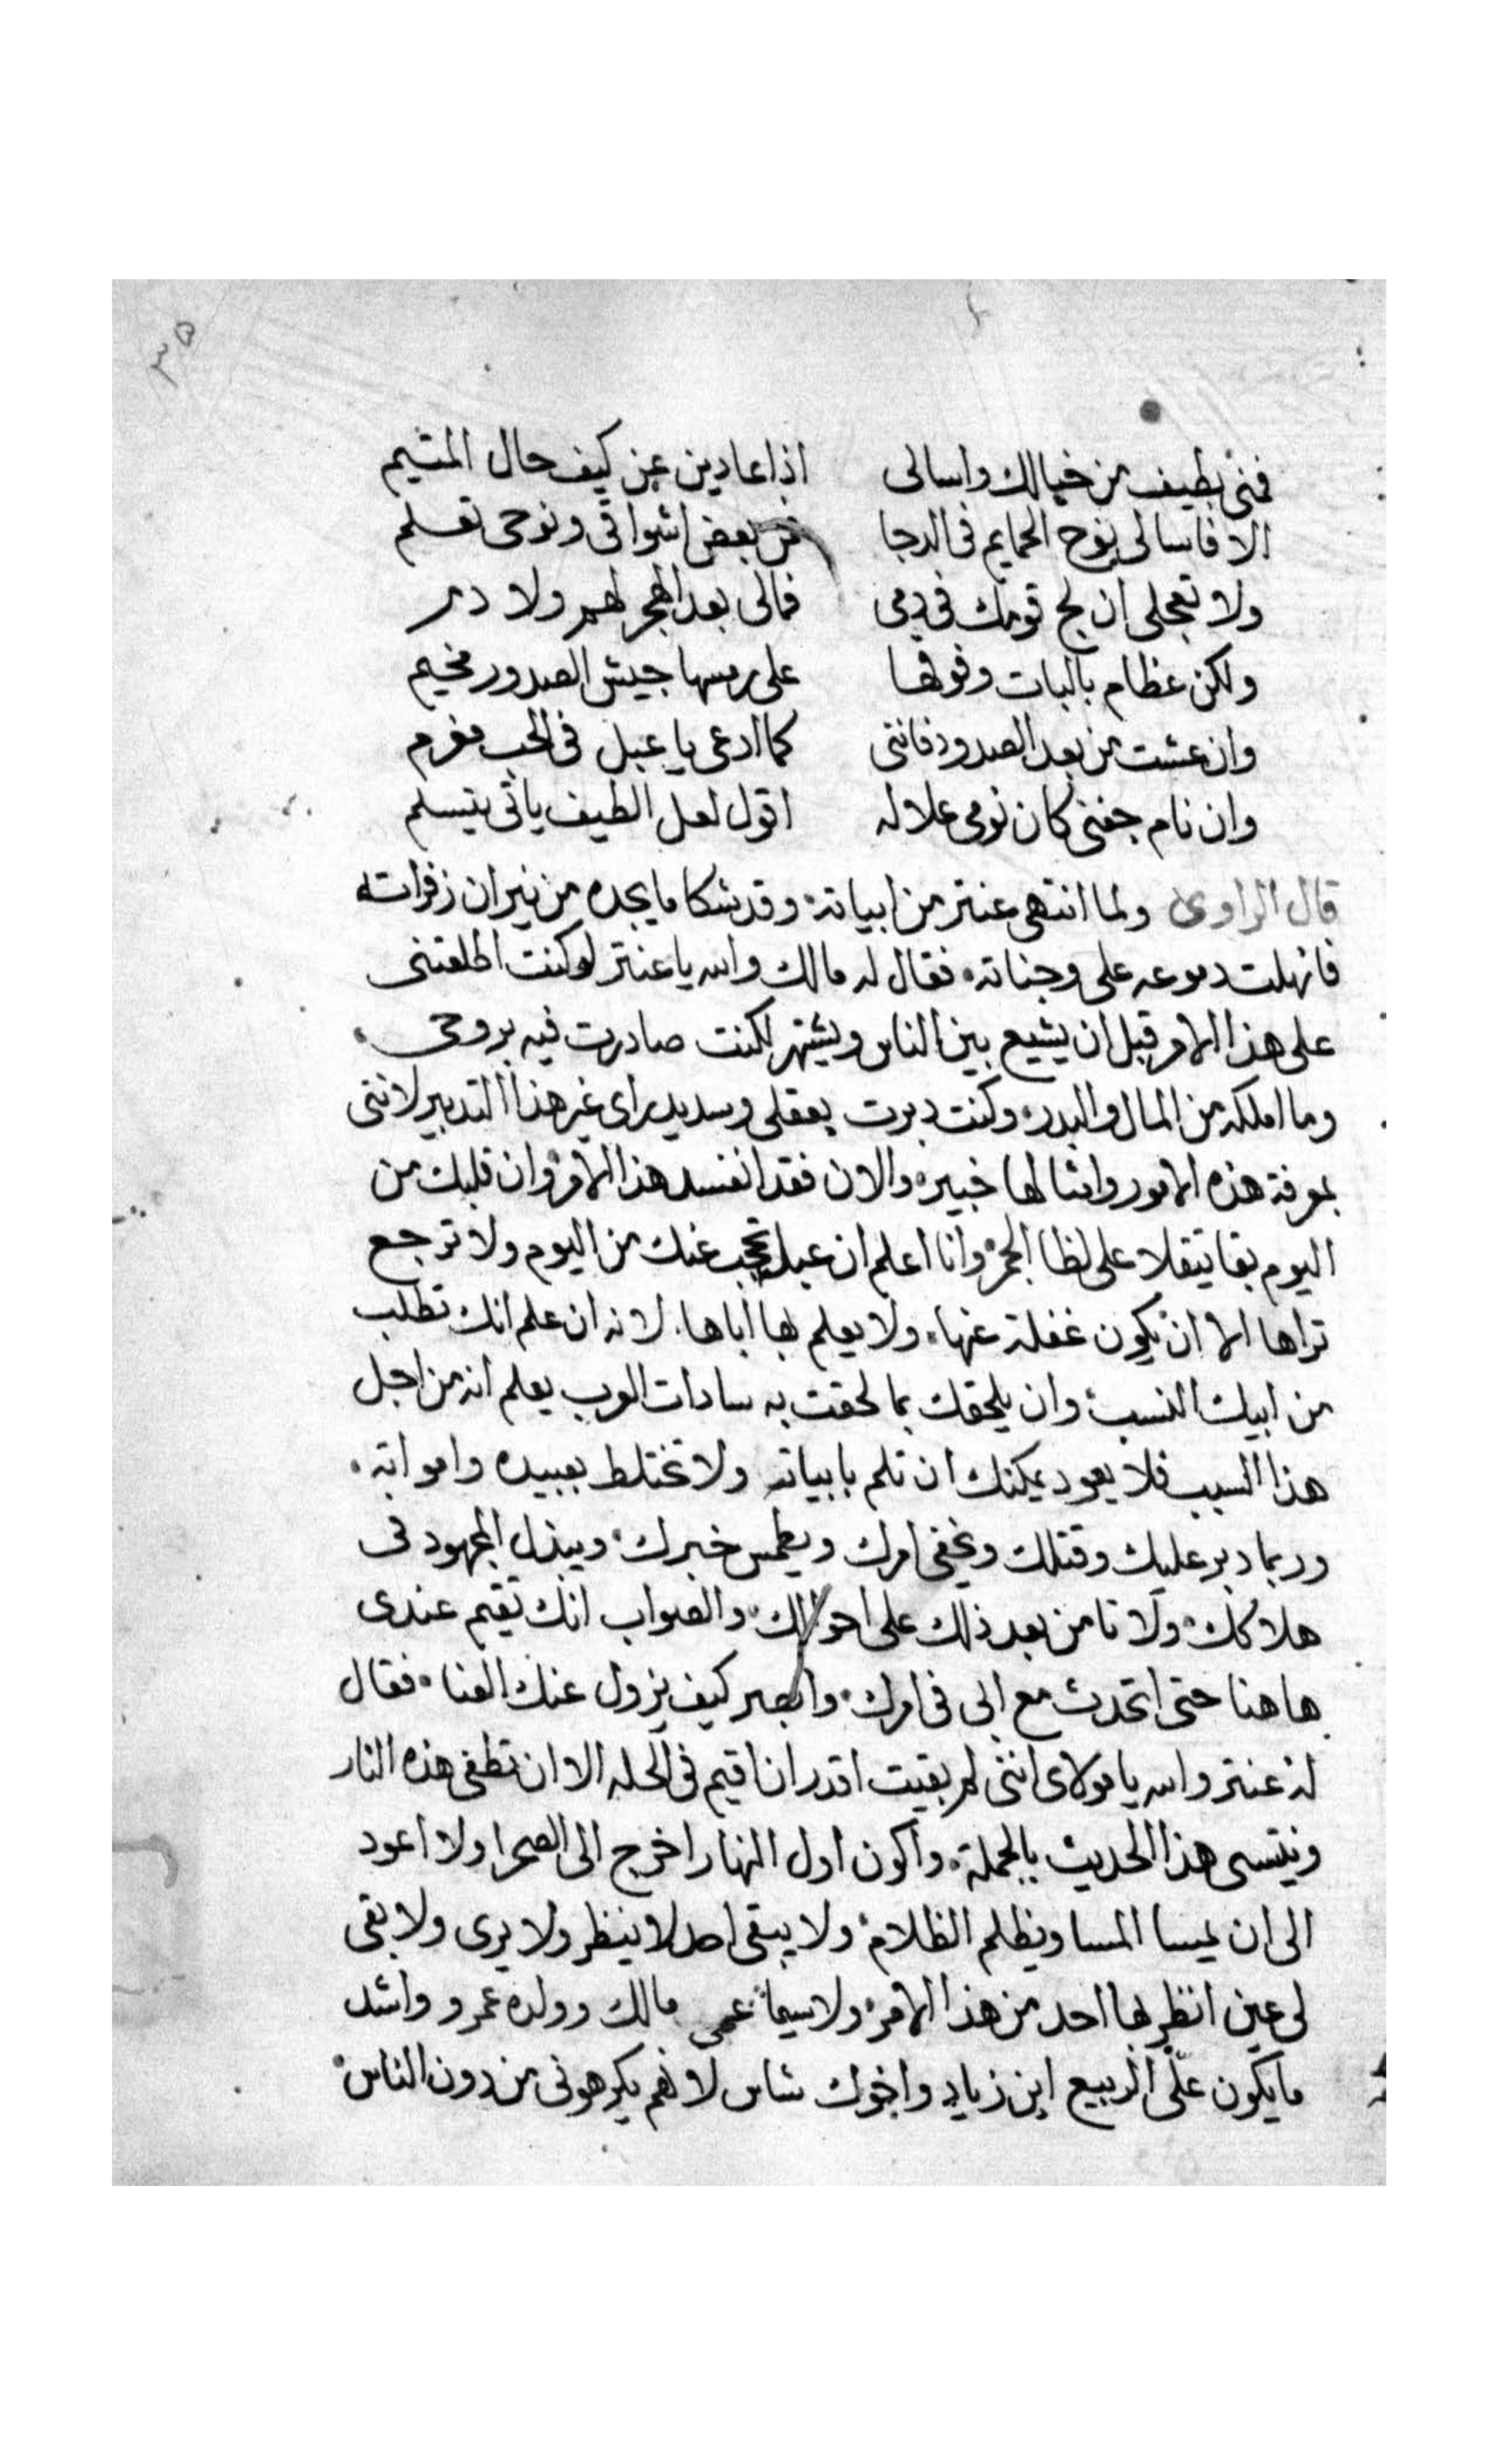 ٣٥
فمنى بطيف من خيالك واسالى اذا عاد ينى عن كيف حال المتيم
الا فاسالى نوح الحمايم فى الدجا فمن بعض اشواقى ونوحى تعلم
ولا تعجلى ان لج قومك فى دمى فمالى بعد الهجر لحم ولا دم
ولكن عظام باليات وفوقها على رمسها جيش الصدور مخيم
وان عشت من بعد الصدود فاننى كما ادعى يا عبل فى الحب مغرم
وان نام جفنى كان نومى علاله اقول لعل الطيف ياتى يتسلم
قال الراوى ولما انتهى عنتر من ابياته وقد شكا ما يجده من نيران زفراته
فانهلت دموعه على وجناته فقال له مالك والله يا عنتر لو كنت اطلعتنى
على هذا الامر قبل ان يشيع بين الناس ويشتهر لكنت صادرت فيه بروحى
وما املكه من المال والبدر وكنت دبرت بعقلى وسديد راى غير هذا التدبير لاننى
بمعرفة هذه الامور وامثالها خبير والان فقد انفسد هذا الامر وان قلبك من
اليوم بقا يتقلا على لظا الجمر وانا اعلم ان عبله تحجب عنك من اليوم ولا ترجع
تراها الا ان يكون غفلة عنها ولا يعلم بها اباها لانه ان علم انك تطلب
من ابيك النسب وان يلحقك بما لحقت به سادات العرب يعلم انه من اجل
هذا السبب فلا يعود يمكنك ان تلم بابياته ولا تختلط بعبيده وامواته
وربما دبر عليك وقتلك ويخفى امرك ويطمس خبرك ويبذل المجهود فى
هلاكك ولا نامن بعد ذلك على احوالك والصواب انك تقيم عندى
هاهنا حتى اتحدث مع ابى فى امرك وابصر كيف يزول عنك العنا فقال
له عنتر والله يا مولاى اننى لم بقيت اقدر ان اقيم فى الحله الا ان تطفى هذه النار
وينتسى هذا الحديث بالجملة واكون اول النهار اخرج الى الصحرا ولا اعود
الى ان يمسا المسا ويظلم الظلام ولا يبقى احد لا ينظر ولا يرى ولا بقى
لى عين انظر بها احد من هذا الامر ولا سيما عمى مالك وولده عمرو واشد
ما يكون علّى الربيع ابن زياد واخوك شاس لانهم يكرهونى من دون الناس